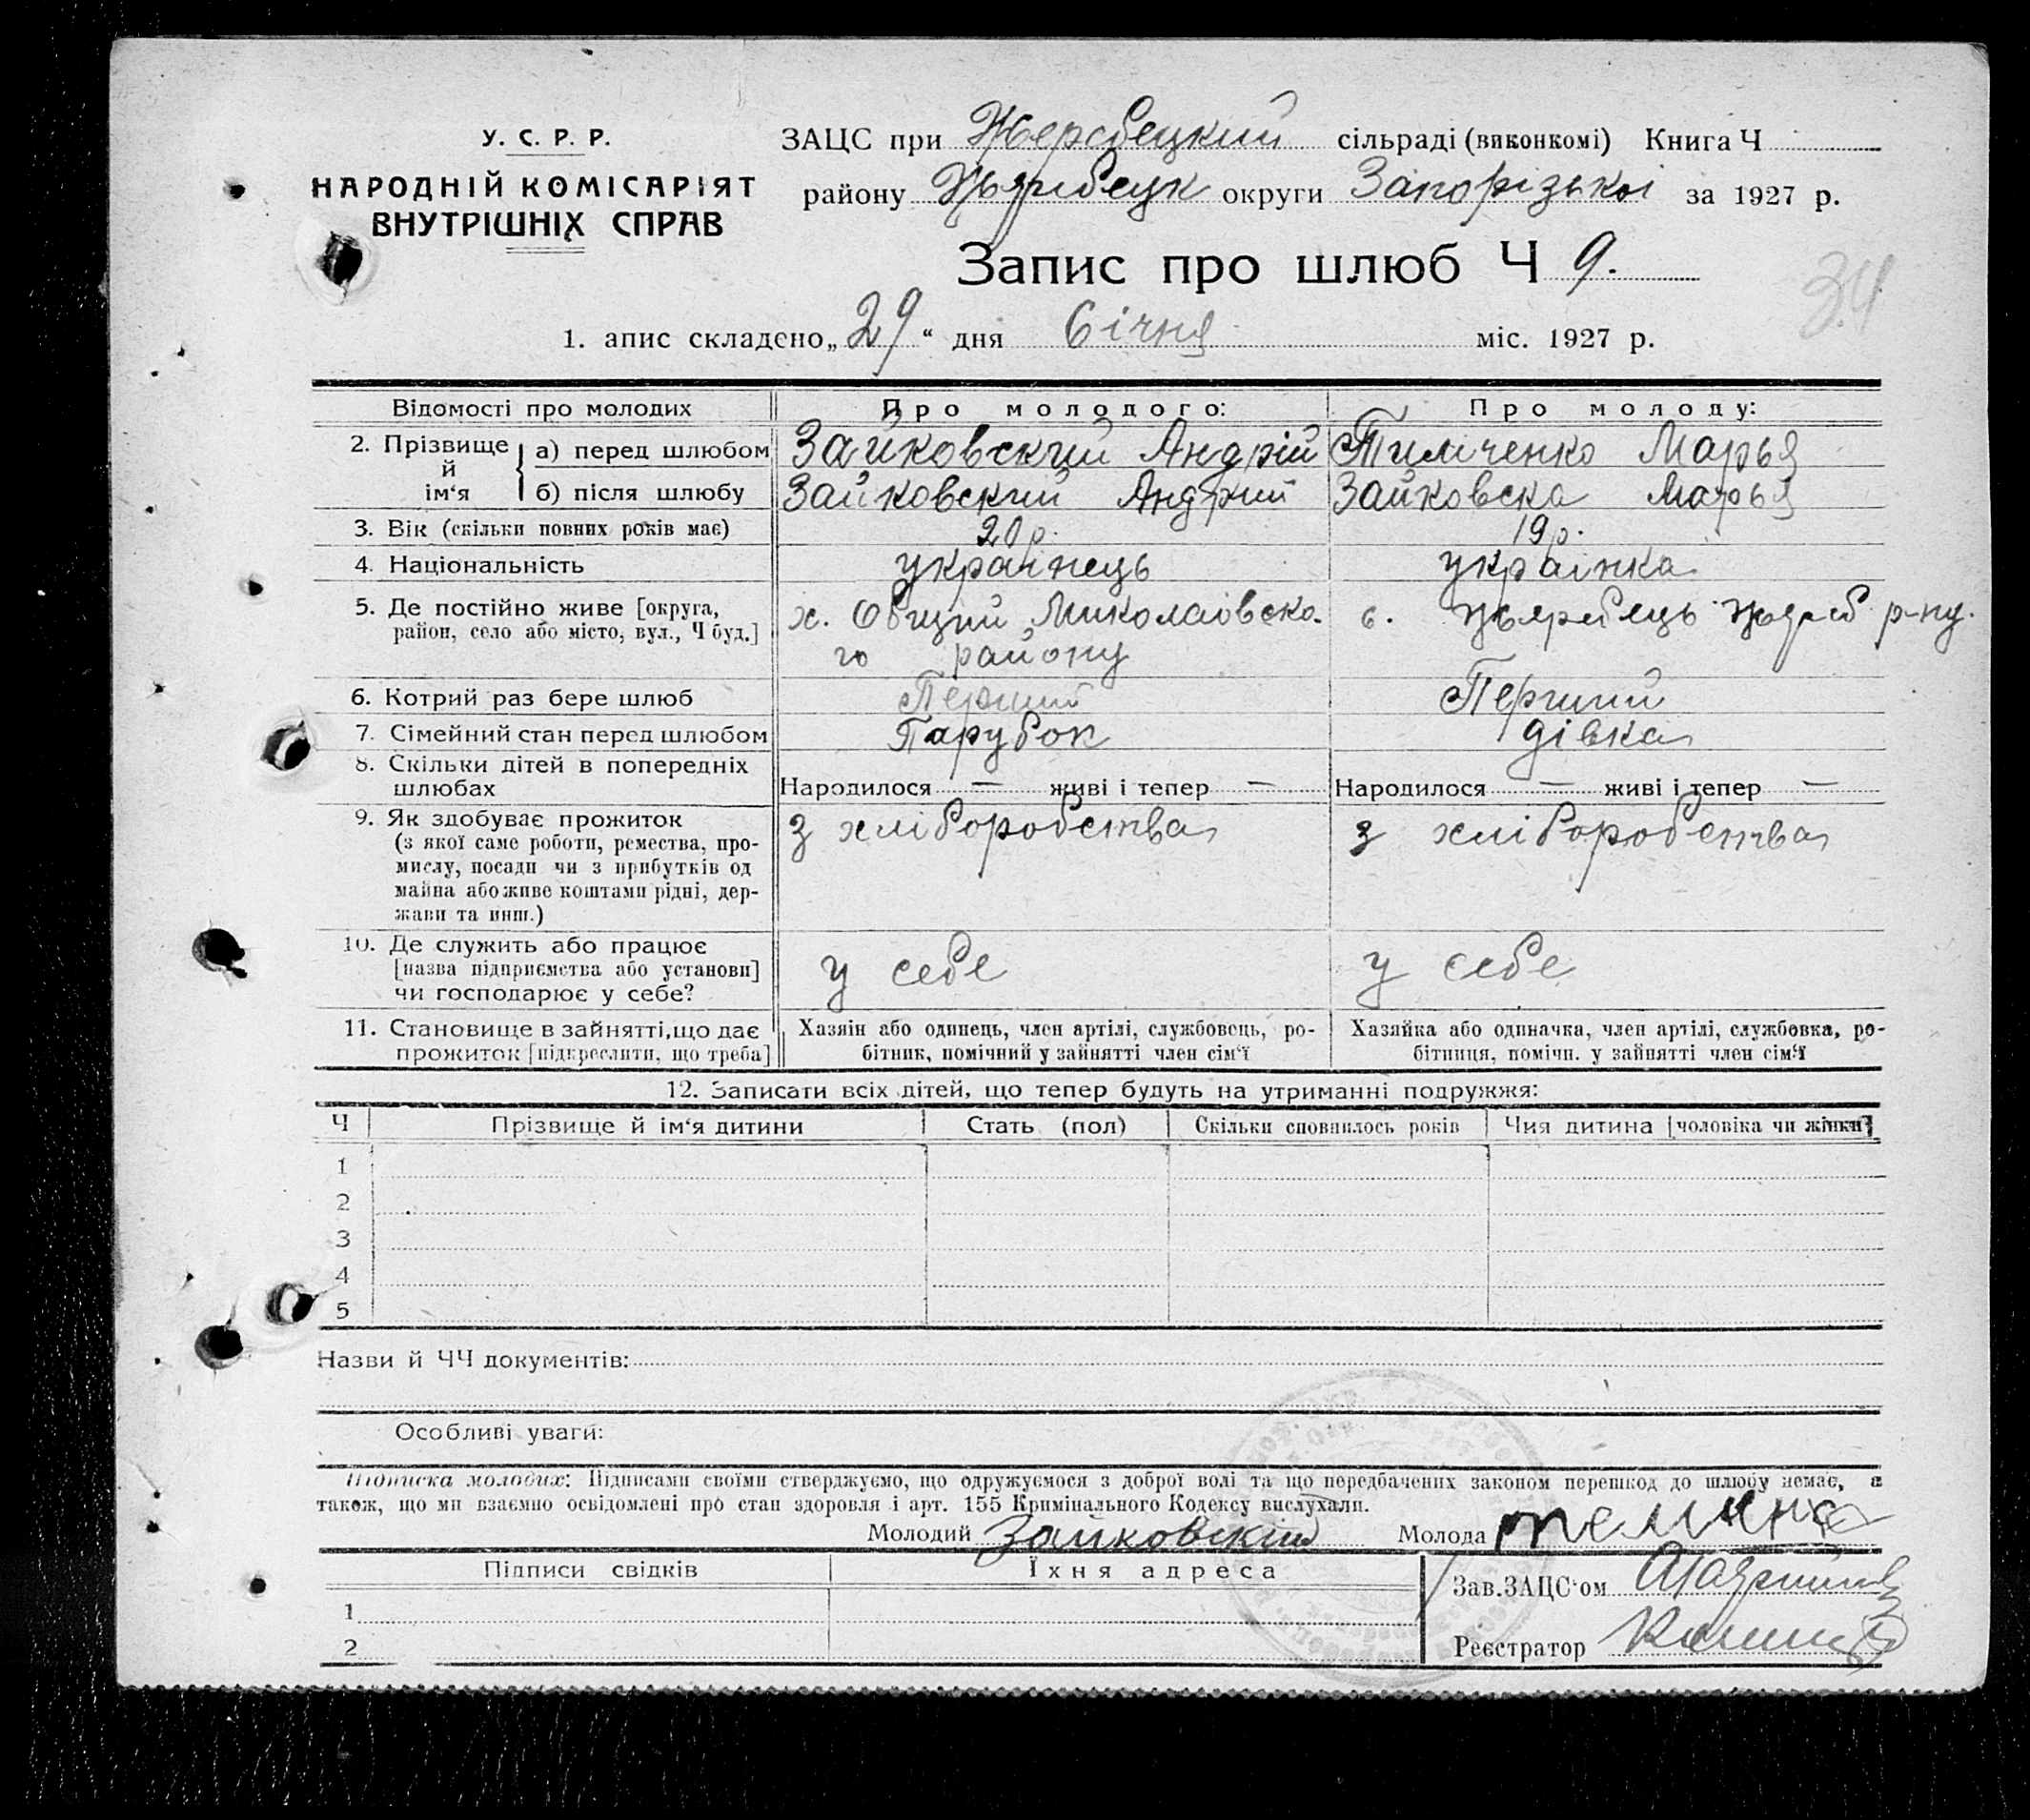 У. С. Р. Р.
НАРОДНІЙ КОМІСАРІЯТ
ВНУТРІШНІХ СПРАВ
ЗАЦС при Жеребецкий сільраді (виконкомі) Книга Ч
району Жеребецк округи Запорізькоі за 1927 р.
Запис про шлюб Ч 9.
34
1. апис складено „29“ дня Січня міс. 1927 р.
Відомості про молодих Про молодого: Про молоду:
2. Прізвище й ім‘я а) перед шлюбом Зайковский Андрій Тимченко Марья
б) після шлюбу Зайковский Андрий Зайковска Марья
3. Вік (скільки повних років має) 20 р. 19 р.
4. Національність українець украінка
5. Де постійно живе [округа, х. Общий Миколаівско- с. Жеребець Жереб р-ну.
район, село або місто, вул., Ч буд.] го району
6. Котрий раз бере шлюб Перший Перший
7. Сімейний стан перед шлюбом Парубок дівка
8. Скільки дітей в попередніх
шлюбах Народилося — живі і тепер — Народилося — живі і тепер —
9. Як здобуває прожиток з хліборобства з хліборобства
(з якої саме роботи, ремества, про-
мислу, посади чи з прибутків од
майна або живе коштами рідні, дер-
жави та инш.)
10. Де служить або працює
[назва підприємства або установи] у себе у себе
чи господарює у себе?
11. Становище в зайнятті, що дає Хазяїн або одинець, член артілі, службовець, ро- Хазяйка або одиначка, член артілі, службовка, ро-
прожиток [підкреслити, що треба] бітник, помічний у зайнятті член сім‘ї бітниця, помічн. у зайнятті член сім‘ї
12. Записати всіх дітей, що тепер будуть на утриманні подружжя:
Ч Прізвище й ім‘я дитини Стать (пол) Скільки сповнилось років Чия дитина [чоловіка чи жінки]
1
2
3
4
5
Назви й ЧЧ документів:
Особливі уваги:
Підписка молодих: Підписами своїми стверджуємо, що одружуємося з доброї волі та що передбачених законом перешкод до шлюбу немає, а
також, що ми взаємно освідомлені про стан здоровля і арт. 155 Кримінального Кодексу вислухали.
Молодий Зайковский Молода
Підписи свідків Їхня адреса Зав. ЗАЦС‘ом
1
2 Реєстратор